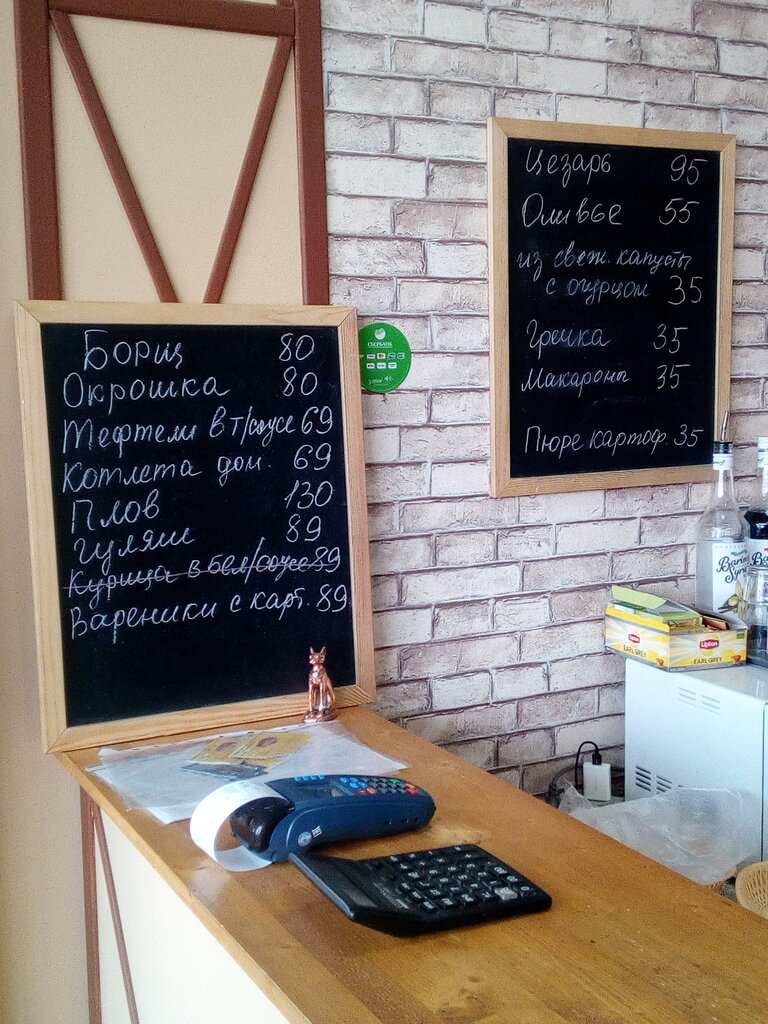 Борщ 80
Окрошка 80
Тефтели в т/соусе 69
Котлета дом. 69
Плов 130
Гуляш 89
Курица в бел/соусе 89
Вареники с карт. 89
СБЕРБАНК
Цезарь 95
Оливье 55
из свеж. капусты
с огурцом 35
Гречка 35
Макароны 35
Пюре картоф. 35
Barline
Syrup
Lipton
EARL GREY
Lipton
EARL GREY